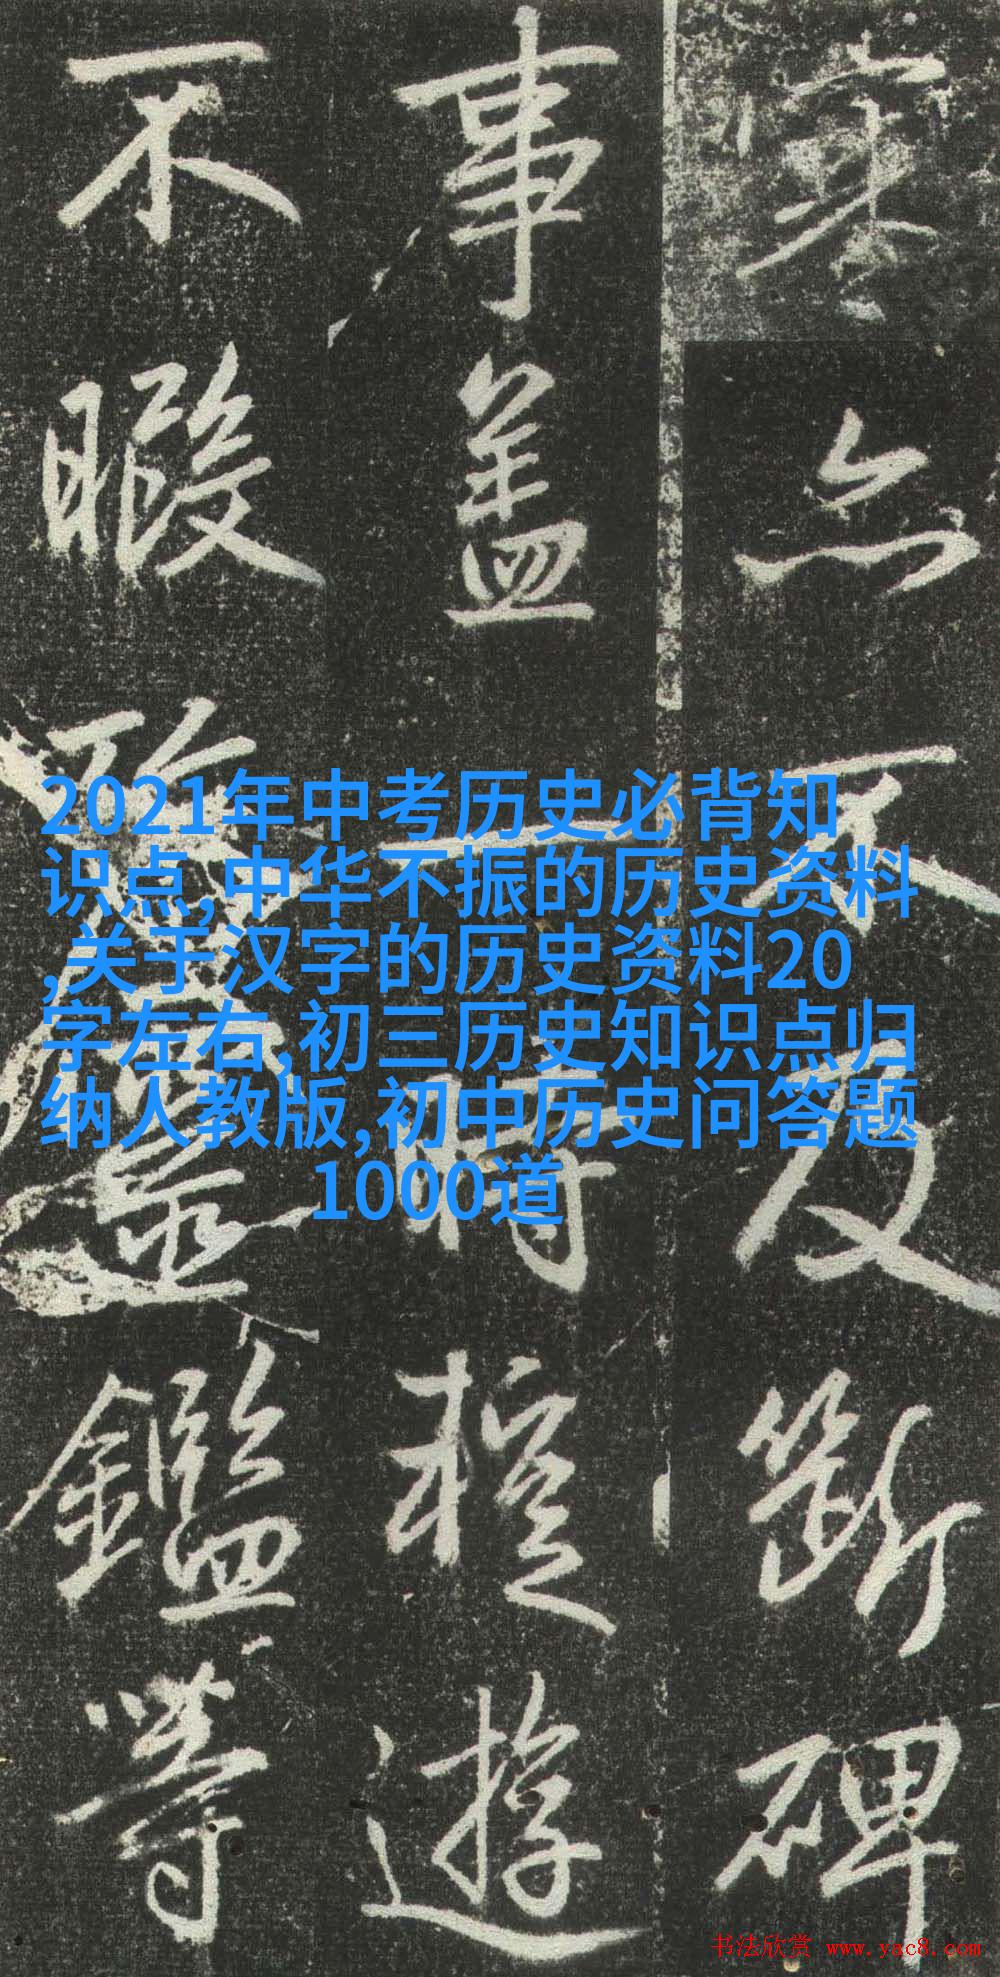 寒亦不及斷碑
事蓋一時
遊
不暇
鑑等
2021年中考历史必背知
识点,中华不振的历史资料
,关于汉字的历史资料20
字左右,初三历史知识点归
纳人教版,初中历史问答题
1000道
书法欣赏 www.yac8.com